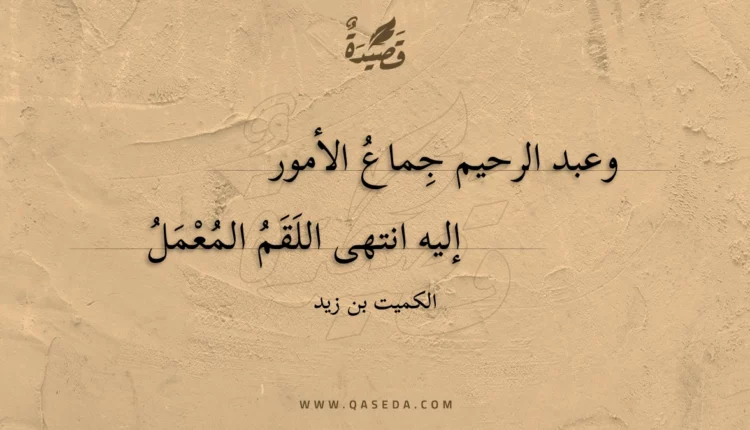 قَصِيْدَةٌ
وعبد الرحيم جِماعُ الأمور
إليه انتهى اللَقَمُ المُعْمَلُ
الكميت بن زيد
WWW.QASEDA.COM